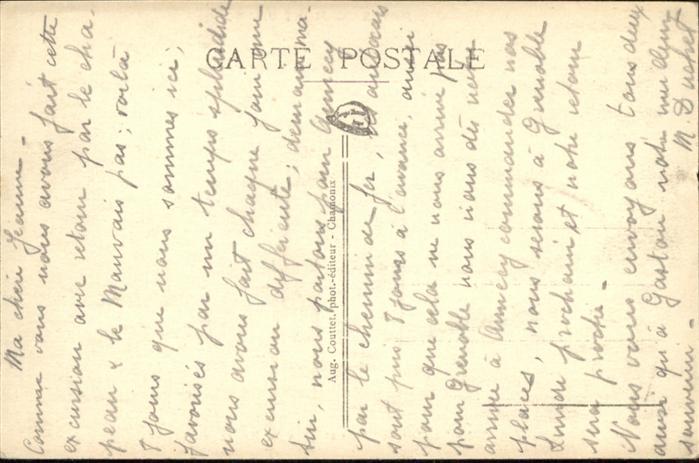 CARTE POSTALE
Aug. Couttet, phot.-éditeur - Chamonix
Ma chère Jeanne -
Comme vous nous avons fait cette
excursion avec retour par le cha-
peau & le Mauvais pas; voilà
8 jours que nous sommes ici,
favorisés par un temps splendide
nous avons fait chaque jour une
excursion différente; demain ma-
tin, nous partons pour Annecy
par le chemin de fer,
sont pris 8 jours à l'avance, aussi
pour que cela ne nous arrive pas
pour Grenoble nous irons dès notre
arrivée à Annecy commander nos
places, nous serons à Grenoble
Lundi prochain et notre retour
sera proche -
Nous vous envoyons à tous deux
ainsi qu'à Gaston notre meilleur
souvenir - M